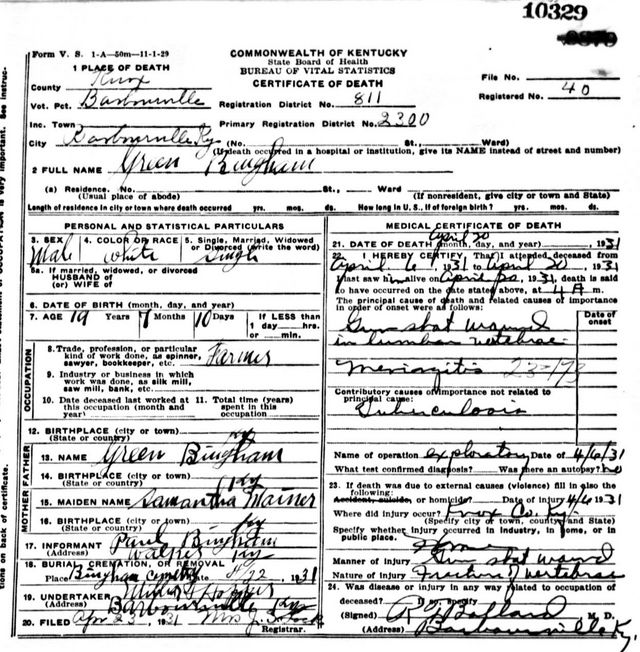 10329
Form V. S. 1-A-50m-11-1-29
COMMONWEALTH OF KENTUCKY
State Board of Health
BUREAU OF VITAL STATISTICS
CERTIFICATE OF DEATH
1 PLACE OF DEATH
County Knox
File No.
Vot. Pct. Barbourville
Registration District No. 811
Registered No. 40
Inc. Town
Primary Registration District No. 2300
City Barbourville Ky (No. St., Ward)
(If death occurred in a hospital or institution, give its NAME instead of street and number)
2 FULL NAME Green Bingham
(a) Residence. No. St., Ward
(Usual place of abode) (If nonresident, give city or town and State)
Length of residence in city or town where death occurred yrs. mos. ds. How long in U. S., if of foreign birth? yrs. mos. ds.
PERSONAL AND STATISTICAL PARTICULARS
3. SEX Male
4. COLOR OR RACE White
5. Single, Married, Widowed or Divorced (write the word) Single
5a. If married, widowed, or divorced
HUSBAND of
(or) WIFE of
6. DATE OF BIRTH (month, day, and year)
7. AGE 19 Years 7 Months 10 Days If LESS than
1 day,....hrs.
or ....min.
OCCUPATION
8. Trade, profession, or particular
kind of work done, as spinner,
sawyer, bookkeeper, etc. Farmer
9. Industry or business in which
work was done, as silk mill,
saw mill, bank, etc.
10. Date deceased last worked at
this occupation (month and
year)
11. Total time (years)
spent in this
occupation
12. BIRTHPLACE (city or town)
(State or country) Ky
FATHER
13. NAME Green Bingham
14. BIRTHPLACE (city or town)
(State or country) Ky
MOTHER
15. MAIDEN NAME Samantha Warner
16. BIRTHPLACE (city or town)
(State or country) Ky
17. INFORMANT Paul Bingham
(Address) Walker Ky
18. BURIAL, CREMATION, OR REMOVAL
Place Bingham Cemetery 4/22, 1931
19. UNDERTAKER
(Address) Barbourville Ky
20. FILED Apr 23, 1931 Mrs J.
Registrar.
MEDICAL CERTIFICATE OF DEATH
21. DATE OF DEATH (month, day, and year) April 20, 1931
22. I HEREBY CERTIFY, That I attended deceased
from April 6, 1931 to April 20, 1931
I last saw him alive on April 20, 1931, death is said
to have occurred on the date stated above, at 4 A m.
The principal cause of death and related causes of importance
in order of onset were as follows:
Date of
onset
Gun shot wound
in lumbar vertebrae
Meningitis 23-173
Contributory causes of importance not related to
principal cause:
Tuberculosis
Name of operation exploratory Date of 4/6/31
What test confirmed diagnosis? Was there an autopsy? no
23. If death was due to external causes (violence) fill in also the
following:
Accident, suicide, or homicide? Date of injury 4/6 1931
Where did injury occur? Knox Co. Ky.
(Specify city or town, county, and State)
Specify whether injury occurred in industry, in home, or in
public place.
Manner of injury Gun shot wound
Nature of injury Fracture of vertebrae
24. Was disease or injury in any way related to occupation of
deceased? If so, specify
(Signed) M. D.
(Address) Barbourville Ky.